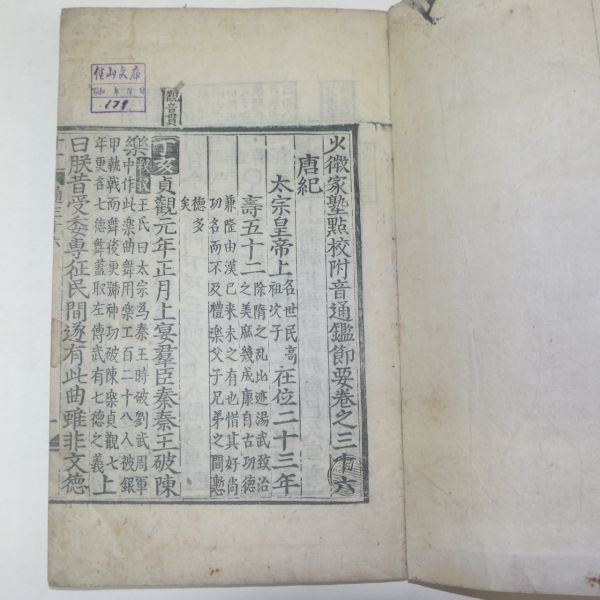 少微家塾點校附音通鑑節要卷之三十六
唐紀
太宗皇帝上名世民高祖次子在位二十三年
壽五十二除隋之亂比迹湯武致治之美庶幾成康自古功德
兼隆由漢已來未之有也惜其好尚功名而不及禮樂父子兄弟之間慙
德多矣
丁亥貞觀元年正月上宴羣臣奏秦王破陳
樂王氏曰太宗爲秦王時破劉武周軍中作此樂曲舞用樂工百二十八人被銀
甲執戟而舞後更號神功破陳樂貞觀七年更名七德舞蓋取左傳武有七德之義上
曰朕昔受委專征民間遂有此曲雖非文德
觀音貫
佳山文庫
179